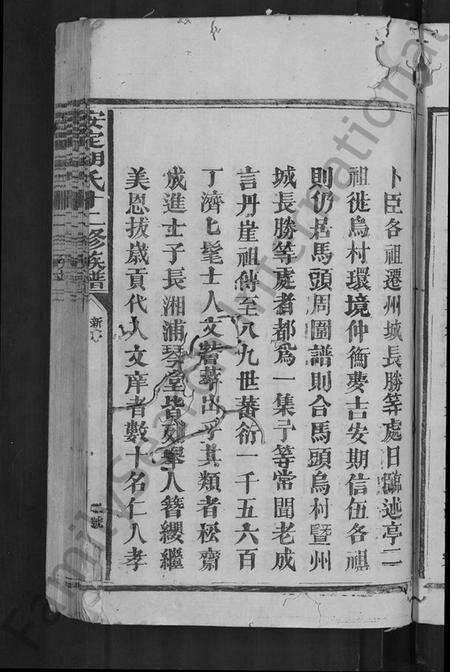 卜臣各祖遷州城長勝等處日隨述亭二
祖徙烏村環境仲衡麥吉安期信伍各祖
則仍居馬頭周圍譜則合馬頭烏村暨州
城長勝等處者都為一集予等常聞老成
言丹崖祖傳至八九世蕃衍一千五六百
丁濟匕髦士人文蔚葊出乎其類者松齋
成進士子長湘浦琴堂皆列舉人簪纓繼
美恩拔歲貢代人文庠者數十名仁人孝
安定胡氏十二修族譜
新序
二號
FamilySearch International